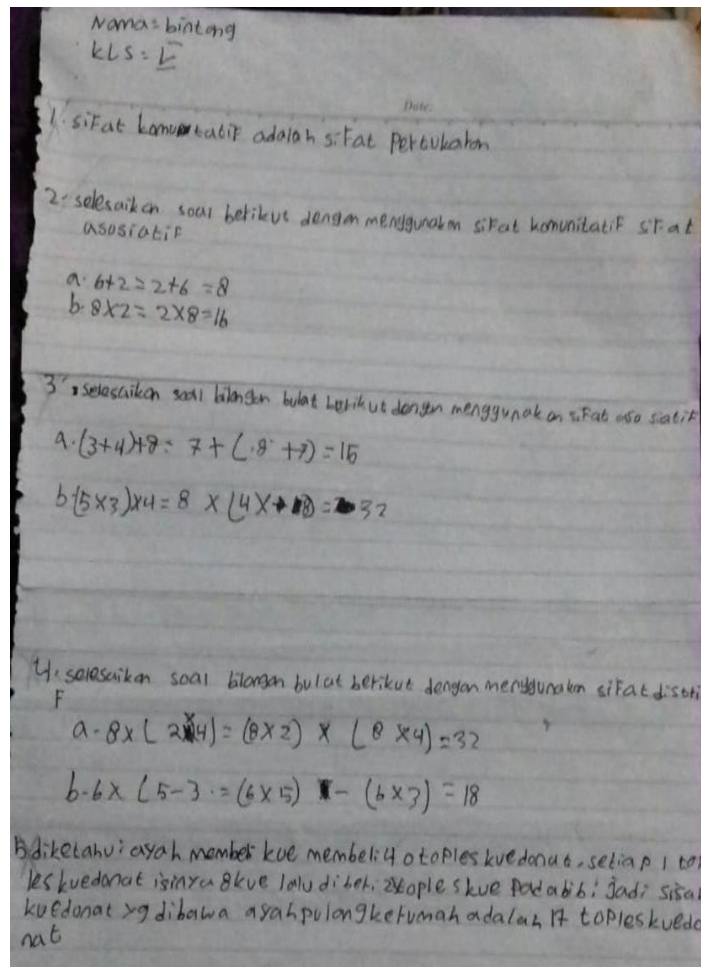 Nama = bintang
KLS = V
Date:
1. sifat komutatif adalah sifat Pertukaran
2. selesaikan soal berikut dengan menggunakan sifat komunitatif sifat
asosiatif
a. 6+2 = 2+6 = 8
b. 8x2 = 2x8=16
3. selesaikan soal bilangan bulat berikut dengan menggunakan sifat aso siatif
a. (3+4)+8 = 7 + (8 + 7) = 15
b (5x3)x4 = 8 x (4x 8) = 32
4. selesaikan soal bilangan bulat berikut dengan menggunakan sifat distri
F
a - 8x ( 2x4) = (8x2) x (8 x4) = 32
b - 6x (5-3 . = (6x5) - (6x3) = 18
5 diketahui ayah member kue membeli 40toples kuedonat. setiap 1 to
les kuedonat isinya 8kue lalu diberi toples kue Pada bibi jadi sisa
kuedonat yg dibawa ayah pulang kerumah adalah 17 toples kuedo
nat